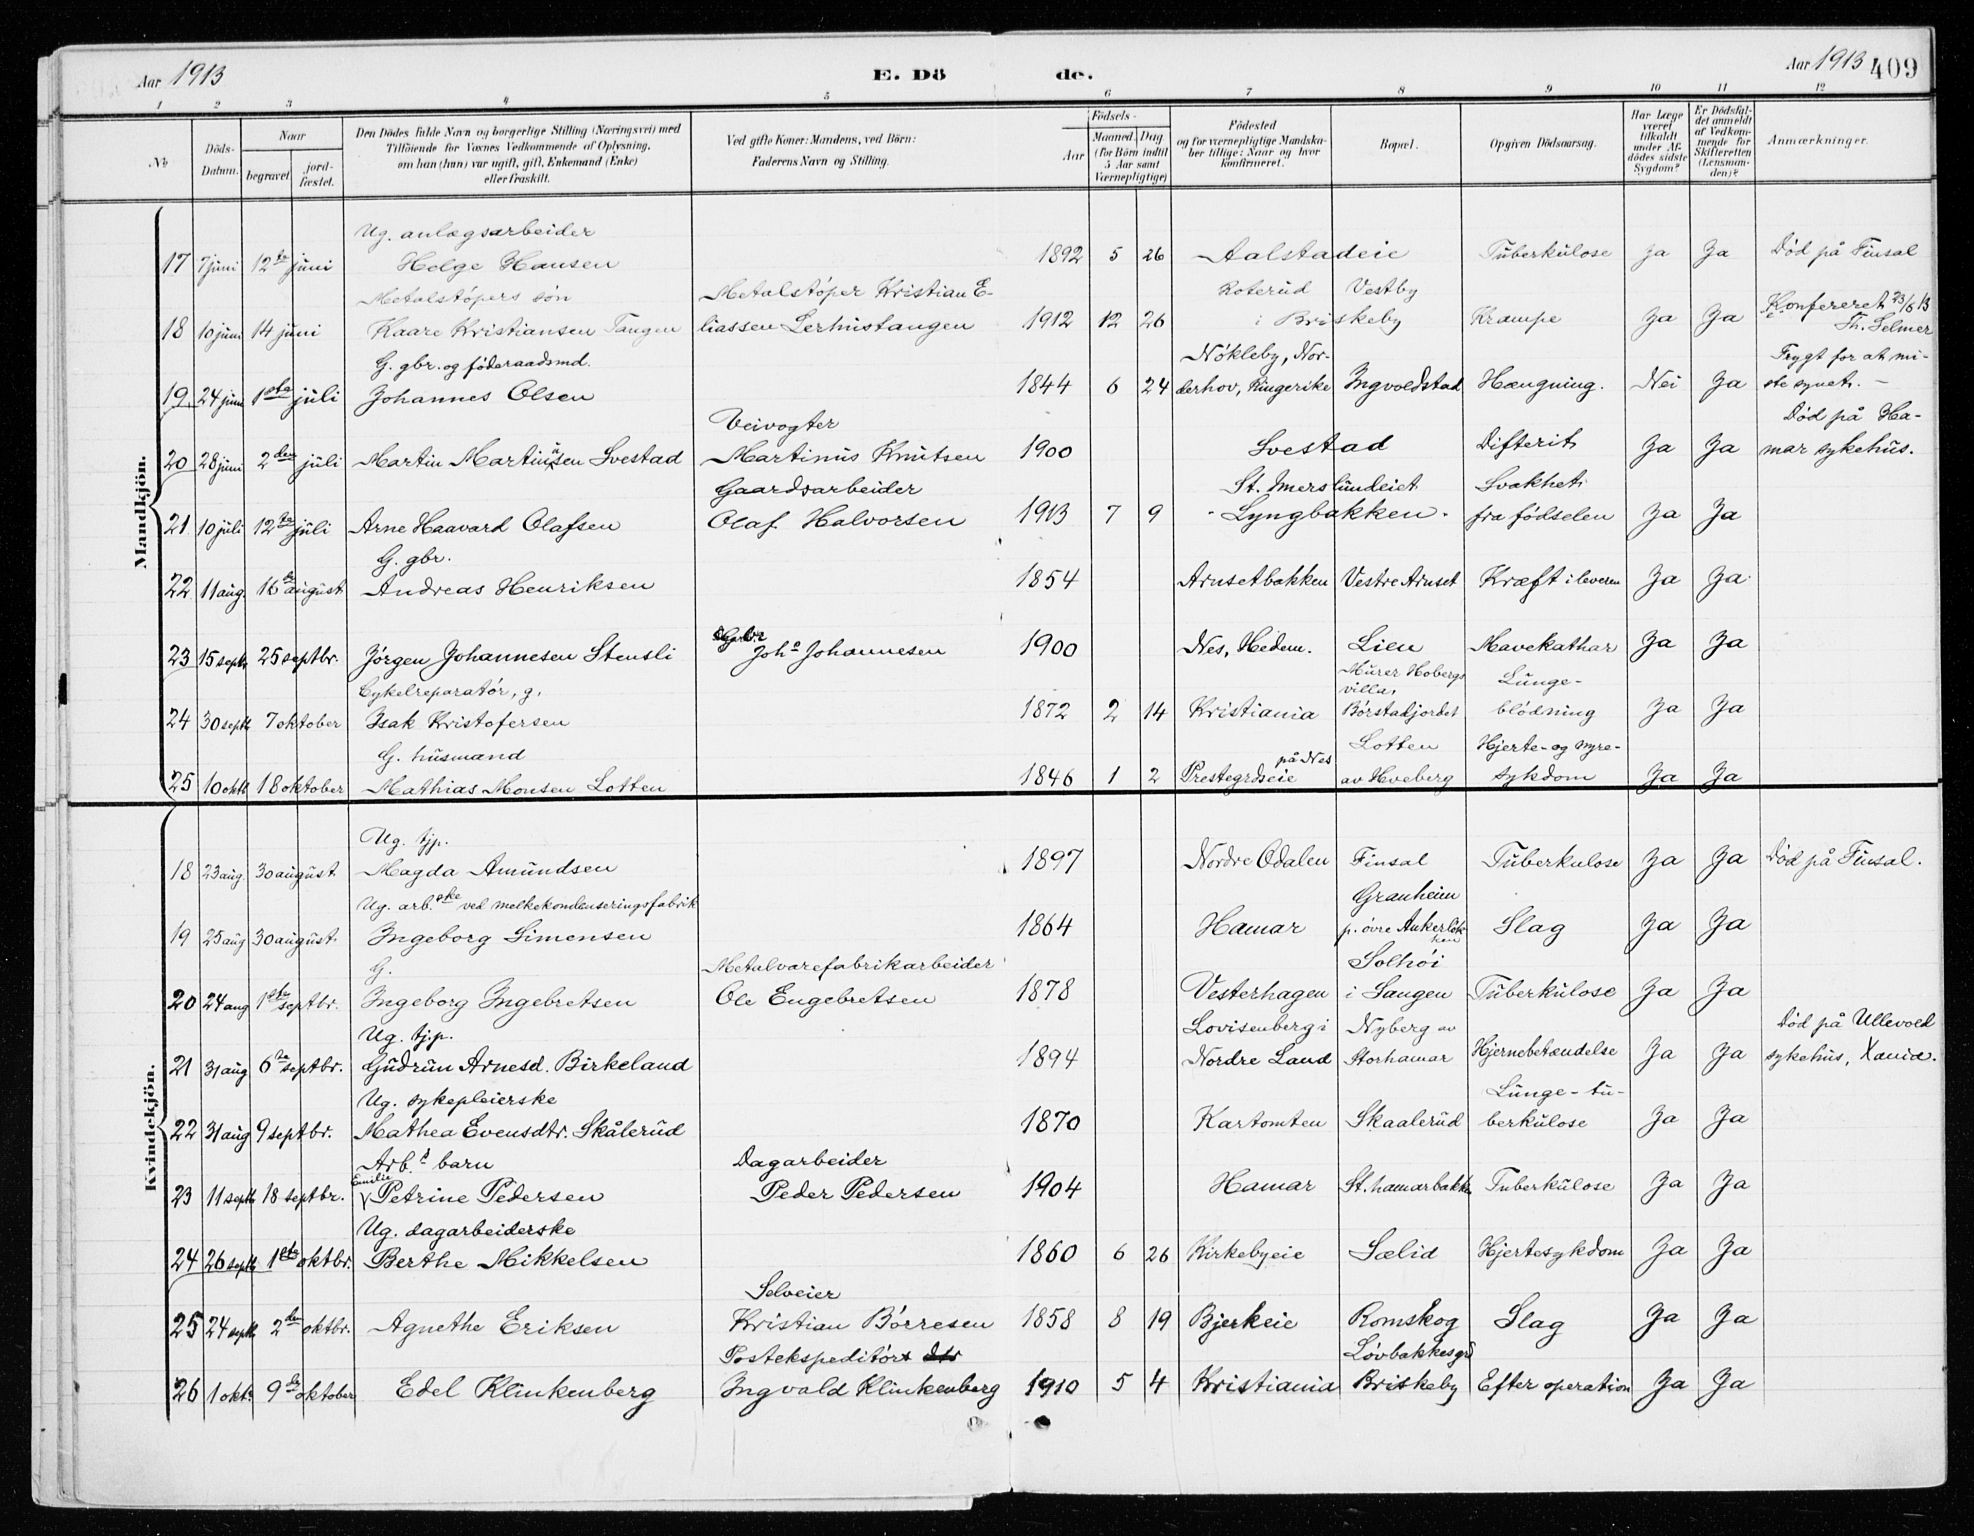 Aar 1913
E. Dö de.
Aar 1913 409
1 2 3 4 5 6 7 8 9 10 11 12
No
Döds-Datum.
Naar
begravet.
jord-fæstet.
Den Dödes fulde Navn og borgerlige Stilling (Næringsvei) med
Tilföiende for Voxnes Vedkommende af Oplysning,
om han (hun) var ugift, gift, Enkemand (Enke)
eller fraskilt.
Ved gifte Koner: Mandens, ved Börn:
Faderens Navn og Stilling.
Födsels-
Aar
Maaned. Dag
(for Börn indtil
5 Aar samt
Værnepligtige)
Födested
og for værnepligtige Mandska-
ber tillige: Naar og hvor
konfirmeret.
Bopæl.
Opgiven Dödsaarsag.
Har Læge
været
tilkaldt
under Af-
dödes sidste
Sygdom?
Er Dödsfal-
det anmeldt
af Vedkom-
mende for
Skifteretten
(Lensman-
den)?
Anmærkninger.
Mandkjön.
Ug. anlægsarbeider
17 7 juni 12te juni Helge Hansen 1892 5 26 Aalstadeie Tuberkulose Ja Ja Död på Finsal
Metalstöpers sön Metalstöper Kristian E- Koterud Vestby
18 10 juni 14 juni Kaare Kristiansen Tangen liassen Lerhustangen 1912 12 26 i Briskeby Krampe Ja Ja Konfereret 23/6 13
Th. Selmer
G. gbr. og föderaadsmd. Nökleby, Nor- Frygt for at mi-
19 24 juni 1ste juli Johannes Olsen 1844 6 24 derhov, Ringerike Ingvoldstad Hængning. Nei Ja ste synet. –
Veivogter Död på Ha-
20 28 juni 2den juli Martin Martinusen Svestad Martinus Knutsen 1900 Svestad Difterit Ja Ja mar sykehus.
Gaardsarbeider St. Imerslundeiet Svakhet
21 10 juli 12te juli Arne Haavard Olafsen Olaf Halvorsen 1913 7 9 Lyngbakken. fra födselen Ja Ja
G. gbr.
22 11 aug. 16de august Andreas Henriksen 1854 Arnsetbakken Vestre Arnset Kræft i leveren Ja Ja
23 15 septb 25 septbr. Jörgen Johannesen Stensli Johs Johannesen 1900 Nes, Hedem. Lien Mavekathar Ja Ja
Cykelreparatör, g. Murer Hobergs villa, Lunge-
24 30 septb 7 oktober Isak Kristofersen 1872 2 14 Kristiania Börstadjordet blödning Ja Ja
G. husmand på Nes Lotten Hjerte- og nyre-
25 10 oktb 18 oktober Mathias Monsen Lotten 1846 1 2 Prestegrdseie av Hveberg sykdom Ja Ja
Kvindekjön.
Ug. tjp.
18 23 aug. 30 august Magda Amundsen 1897 Nordre Odalen Finsal Tuberkulose Ja Ja Död på Finsal.
Ug. arb.ske ved melkekondenseringsfabrik Granheim
19 25 aug 30 august. Ingeborg Simensen 1864 Hamar p. övre Ankerlök- Slag Ja Ja
ken
G. Metalvarefabrikarbeider Solhöi
20 24 aug 1ste septbr. Ingeborg Ingebretsen Ole Engebretsen 1878 Vesterhagen i Sangen Tuberkulose Ja Ja
Ug. tj.p. Lovisenberg i Nyberg av Död på Ullevold
21 31 aug 6te septbr. Gudrun Arnesd. Birkeland 1894 Nordre Land Storhamar Hjernebetændelse Ja Ja sykehus, Xania.
Ug. sykepleierske Lunge-tu-
22 31 aug 9 septbr. Mathea Evensdtr. Skålerud 1870 Kartomten Skaalerud berkulose Ja Ja
Arb.s barn Dagarbeider
Emilie
23 11 septb 18 septbr. Petrine Pedersen Peder Pedersen 1904 Hamar St.hamarbakken Tuberkulose Ja Ja
Ug. dagarbeiderske
24 26 septb 1ste oktbr. Berthe Mikkelsen 1860 6 26 Kirkebyeie Sælid Hjertesykdom Ja Ja
Selveier
25 24 septb 2den oktbr. Agnethe Eriksen Kristian Börresen 1858 8 19 Bjerkeie Romskog Slag Ja Ja
Postekspeditör Lövbakkesgd
26 1 okt. 9de oktober Edel Klinkenberg Ingvald Klinkenberg 1910 5 4 Kristiania Briskeby Efter operation Ja Ja